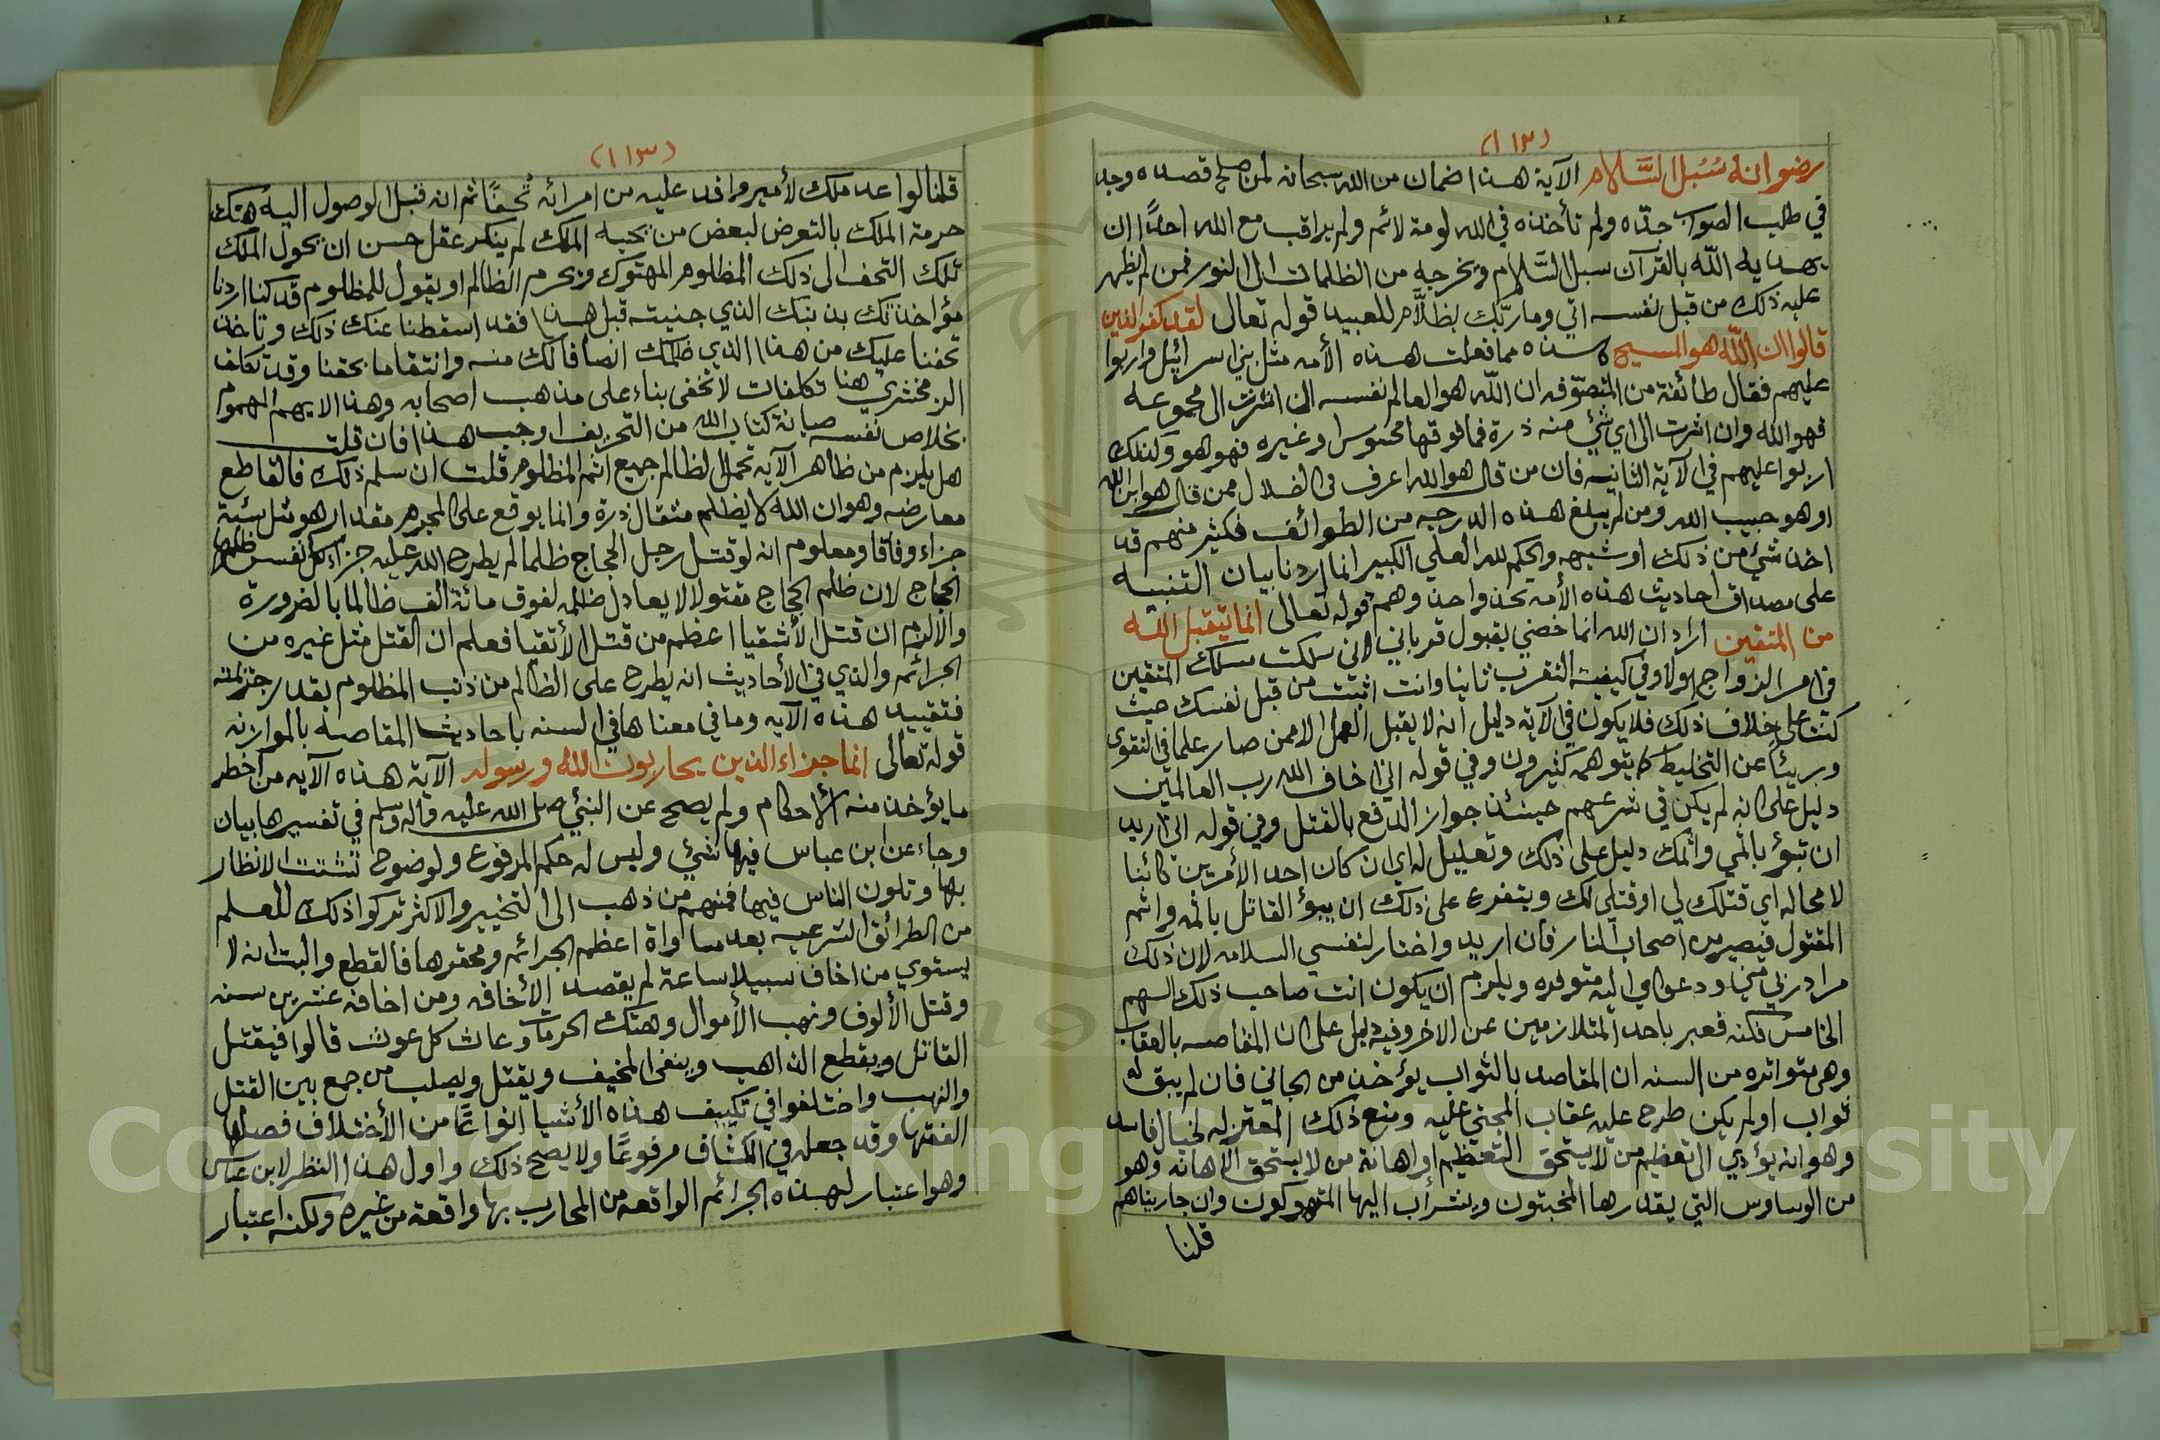 (١١٢)
رضوانه سُبُل السَّلام الآية هذا ضمان من الله سبحانه لمن صلح قصده وجد
في طلب الصواب جدّه ولم تأخذه في الله لومة لائم ولم يراقب مع الله احدًا ان
يهديه الله بالقرآن سبل السَّلام ويخرجه من الظلمات الى النور فمن لم يظهر
عليه ذلك من قبل نفسه اتي وما ربّك بظلَّام للعبيد قوله تعالى لقد كفر الذين
قالوا ان الله هو المسيح هذه مما فعلت هذه الأمه مثل بني اسرائيل واربوا
عليهم فقال طائفة من المتصوّفه ان الله هو العالم نفسه ان اشرت الى مجموعه
فهو الله وان اشرت الى اي شئ منه ذرة فما فوقها محسوس او غيره فهو هو وكذلك
اربوا عليهم في الآية الثانيه فان من قال هو الله اعرف في الضلال ممن قال هو ابن الله
او هو حبيب الله ومن لم يبلغ هذه الدرجه من الطوائف فكثير منهم قد
اخذ شئ من ذلك او شبهه والحكم لله العلي الكبير انما اردنا بيان التنبيه
على مصداق احاديث هذه الأمه تحذوا حذوهم قوله تعالى انما يتقبل الله
من المتقين اراد ان الله انما خصني بقبول قرباني لأني سلكت مسلك المتقين
في امر الزواج اولا وفي كيفية التقرب ثانيا وانت اتيت من قبل نفسك حيث
كنت على خلاف ذلك فلا يكون في الآية دليل انه لا يقبل العمل الا ممن صار علما في التقوى
وبريئاً عن التخليط كما يتوهمه كثيرون وفي قوله اني اخاف الله رب العالمين
دليل على انه لم يكن في شرعهم حينئذ جواز الدفع بالقتل وفي قوله اني اريد
ان تبؤ باثمي واثمك دليل على ذلك وتعليل له اي ان كان احد الأمرين كائنا
لا محاله اي قتلك لي او قتلي لك ويتفرع على ذلك ان يبؤ القاتل باثمه واثم
المقتول فيصير من اصحاب النار فأن اريد واختار لنفسي السلامه لان ذلك
مراد ربي مني ودعواي اليه متوفره ويلزم ان يكون انت صاحب ذلك السهم
الخامس لكنه فعبر باحد المتلازمين عن الاخر وفيه دليل على ان المقاصه بالعقاب
وهي متواتره من السنه ان المقاصه بالثواب يؤخذ من الجاني فان لم يبق له
ثواب او لم يكن طرح عليه عقاب المجني عليه ومنع ذلك المعتزله لخيال فاسد
وهو انه يؤدي الى تعظيم من لا يستحق التعظيم او اهانة من لا يستحق الاهانه وهو
من الوساوس التي يقدرها المخبتون ويشرأب اليها المتهوكون وان جاريناهم
قلنا
(١١٣)
قلنا لو اعد ملك لأمير وافد عليه من امرائه تُحفًا ثم انه قبل الوصول اليه هتك
حرمة الملك بالتعرض لبعض من يحبه الملك لم ينكر عقل حسن ان يحول الملك
تلك التحف الى ذلك المظلوم المهتوك ويحرم الظالم او يقول للمظلوم قد كنا اردنا
مؤاخذتك بذنبك الذي جنيته قبل هذا فقد اسقطنا عنك ذلك وتاخذ
تحفنا عليك من هذا الذي ظلمك انصافا لك منه وانتقاما بحقنا وقد تكلف
الزمخشري هنا تكلفات لا تخفى بناء على مذهب اصحابه وهذا لا يهم المهموم
بخلاص نفسه صيانة كتاب الله من التحريف اوجب هذا فان قلت
هل يلزم من ظاهر الآيه تحمل الظالم جميع اثم المظلوم قلت ان سلم ذلك فالقاطع
معارضه وهو ان الله لا يظلم مثقال ذرة وانما يوقع على المجرم مقدار هو مثل سيئة
جزاء وفاقا ومعلوم انه لو قتل رجل الحجاج ظلما لم يطرح الله عليه جزاء كل نفس ظلمها
الحجاج لان ظلم الحجاج مقتولا لا يعادل ظلمه لفوق مائة الف ظالما بالضرورة
والا لزم ان قتل الأشقيا اعظم من قتل الأتقيا فعلم ان القتل مثل غيره من
الجرائم والذي في الأحاديث انه يطرح على الظالم من ذنب المظلوم بقدر جريمته
فتقييد هذه الآيه وما في معناها في السنه باحاديث المقاصه بالموازنه
قوله تعالى انما جزاء الذين يحاربون الله ورسوله الآية هذه الآيه من اخطر
ما يؤخذ منه الأحكام ولم يصح عن النبي صلى الله عليه وآله وسلم في تفسيرها بيان
وجاء عن ابن عباس فيها شئ وليس له حكم المرفوع ولوضوح تشتت الانظار
بها وتلون الناس فيها فمنهم من ذهب الى التخيير والاكثر تركوا ذلك للعلم
من الطرائق الشرعيه بعدم مساواة اعظم الجرائم ومحقرها فالقطع والبت انه لا
يستوي من اخاف سبيلا ساعة لم يقصد الا الأخافه ومن اخافه عشرين سنه
وقتل الألوف ونهب الأموال وهتك الحرمات وعاث كل عوث قالوا فيقتل
القاتل ويقطع الناهب وينفى المخيف ويقتل ويصلب من جمع بين القتل
والنهب واختلفوا في تكييف هذه الأشيا انواعًا من الأختلاف فصلها
الفقها وقد جعله في الكشاف مرفوعًا ولا يصح ذلك واول هذا النظر لابن عباس
وهو اعتبار لهذه الجرائم الواقعه من المحارب بها واقعة من غيره ولكنه اعتبار